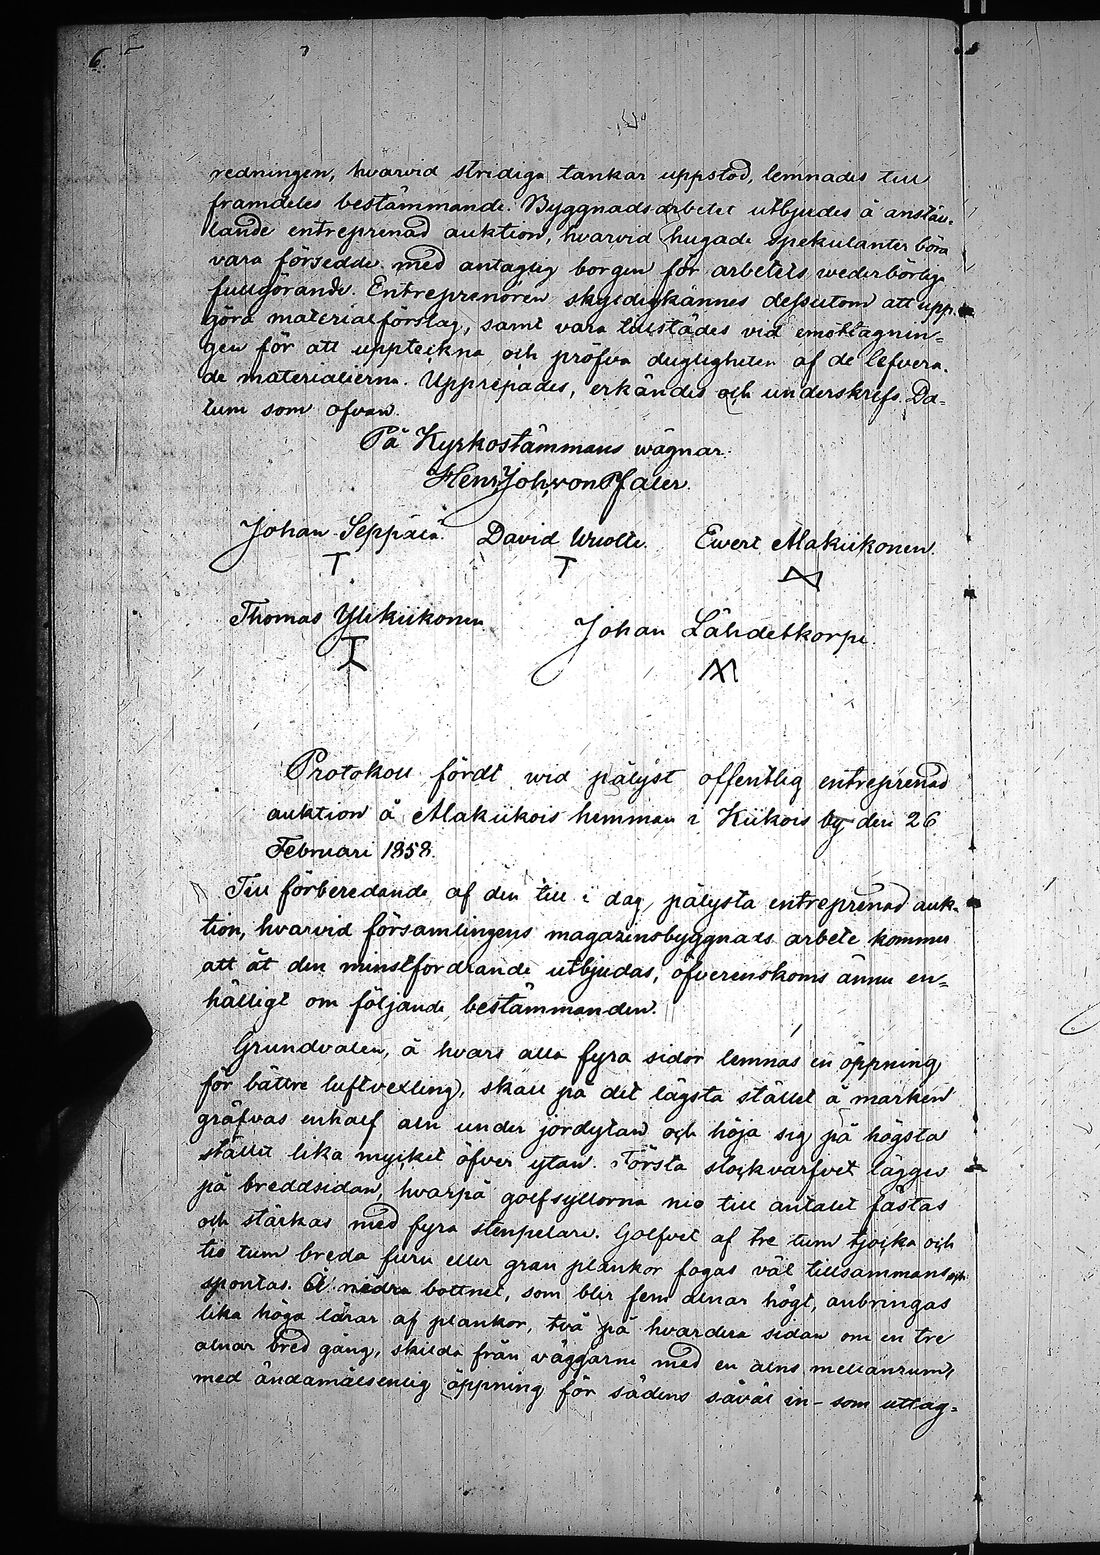 6.
redningen, hvarvid stridiga tankar uppstod, lemnades till
framdeles bestämmande. Byggnadsarbetet utbjudes å anstäl-
lande entreprenad auktion, hvarvid hugade spekulanter böra
vara försedde med antaglig borgen för arbetets wederbörliga
fullgörande. Entreprenören skyldigkännes dessutom att upp-
göra materialförslag, samt vara tillstädes vid emottagnin-
gen för att uppteckna och pröfva dugligheten af de lefvera-
de materialierna. Upprepades, erkändes och underskrefs. Da-
tum som ofvan.
På Kyrkostämmans wägnar.
Henr. Joh. von Pfaler.
Johan Seppälä. David Uuolle. Ewert Alakiikonen.
Thomas Ylikiikonen Johan Lähdetkorpi.
Protokoll fördt wid pålyst offentlig entreprenad
auktion å Alakiikois hemman i Kiikois by den 26
Februari 1858.
Till förberedande af den till i dag pålysta entreprenad auk-
tion, hvarvid församlingens magazinsbyggnads arbete kommer
att åt den minstfordrande utbjudas, öfverenskoms ännu en-
hälligt om följande bestämmanden.
Grundvalen, å hvars alla fyra sidor lemnas en öppning
för bättre luftvexling, skall på det lägsta stället å marken
gräfvas enhalf aln under jordytan och höja sig på högsta
stället lika mycket öfver ytan. Första stockvarfvet lägges
på breddsidan, hvarpå golfsyllorna nio till antalet fästas
och stärkas med fyra stenpelare. Golfvet af tre tum tjocka och
tio tum breda furu eller gran plankor fogas väl tillsammans och
spontas. Å nedra bottnet, som blir fem alnar högt, anbringas
lika höga lårar af plankor, två på hvardera sidan om en tre
alnar bred gång, skilda från väggarne med en alns mellanrum,
med ändamålsenlig öppning för sädens såväl in- som uttag-